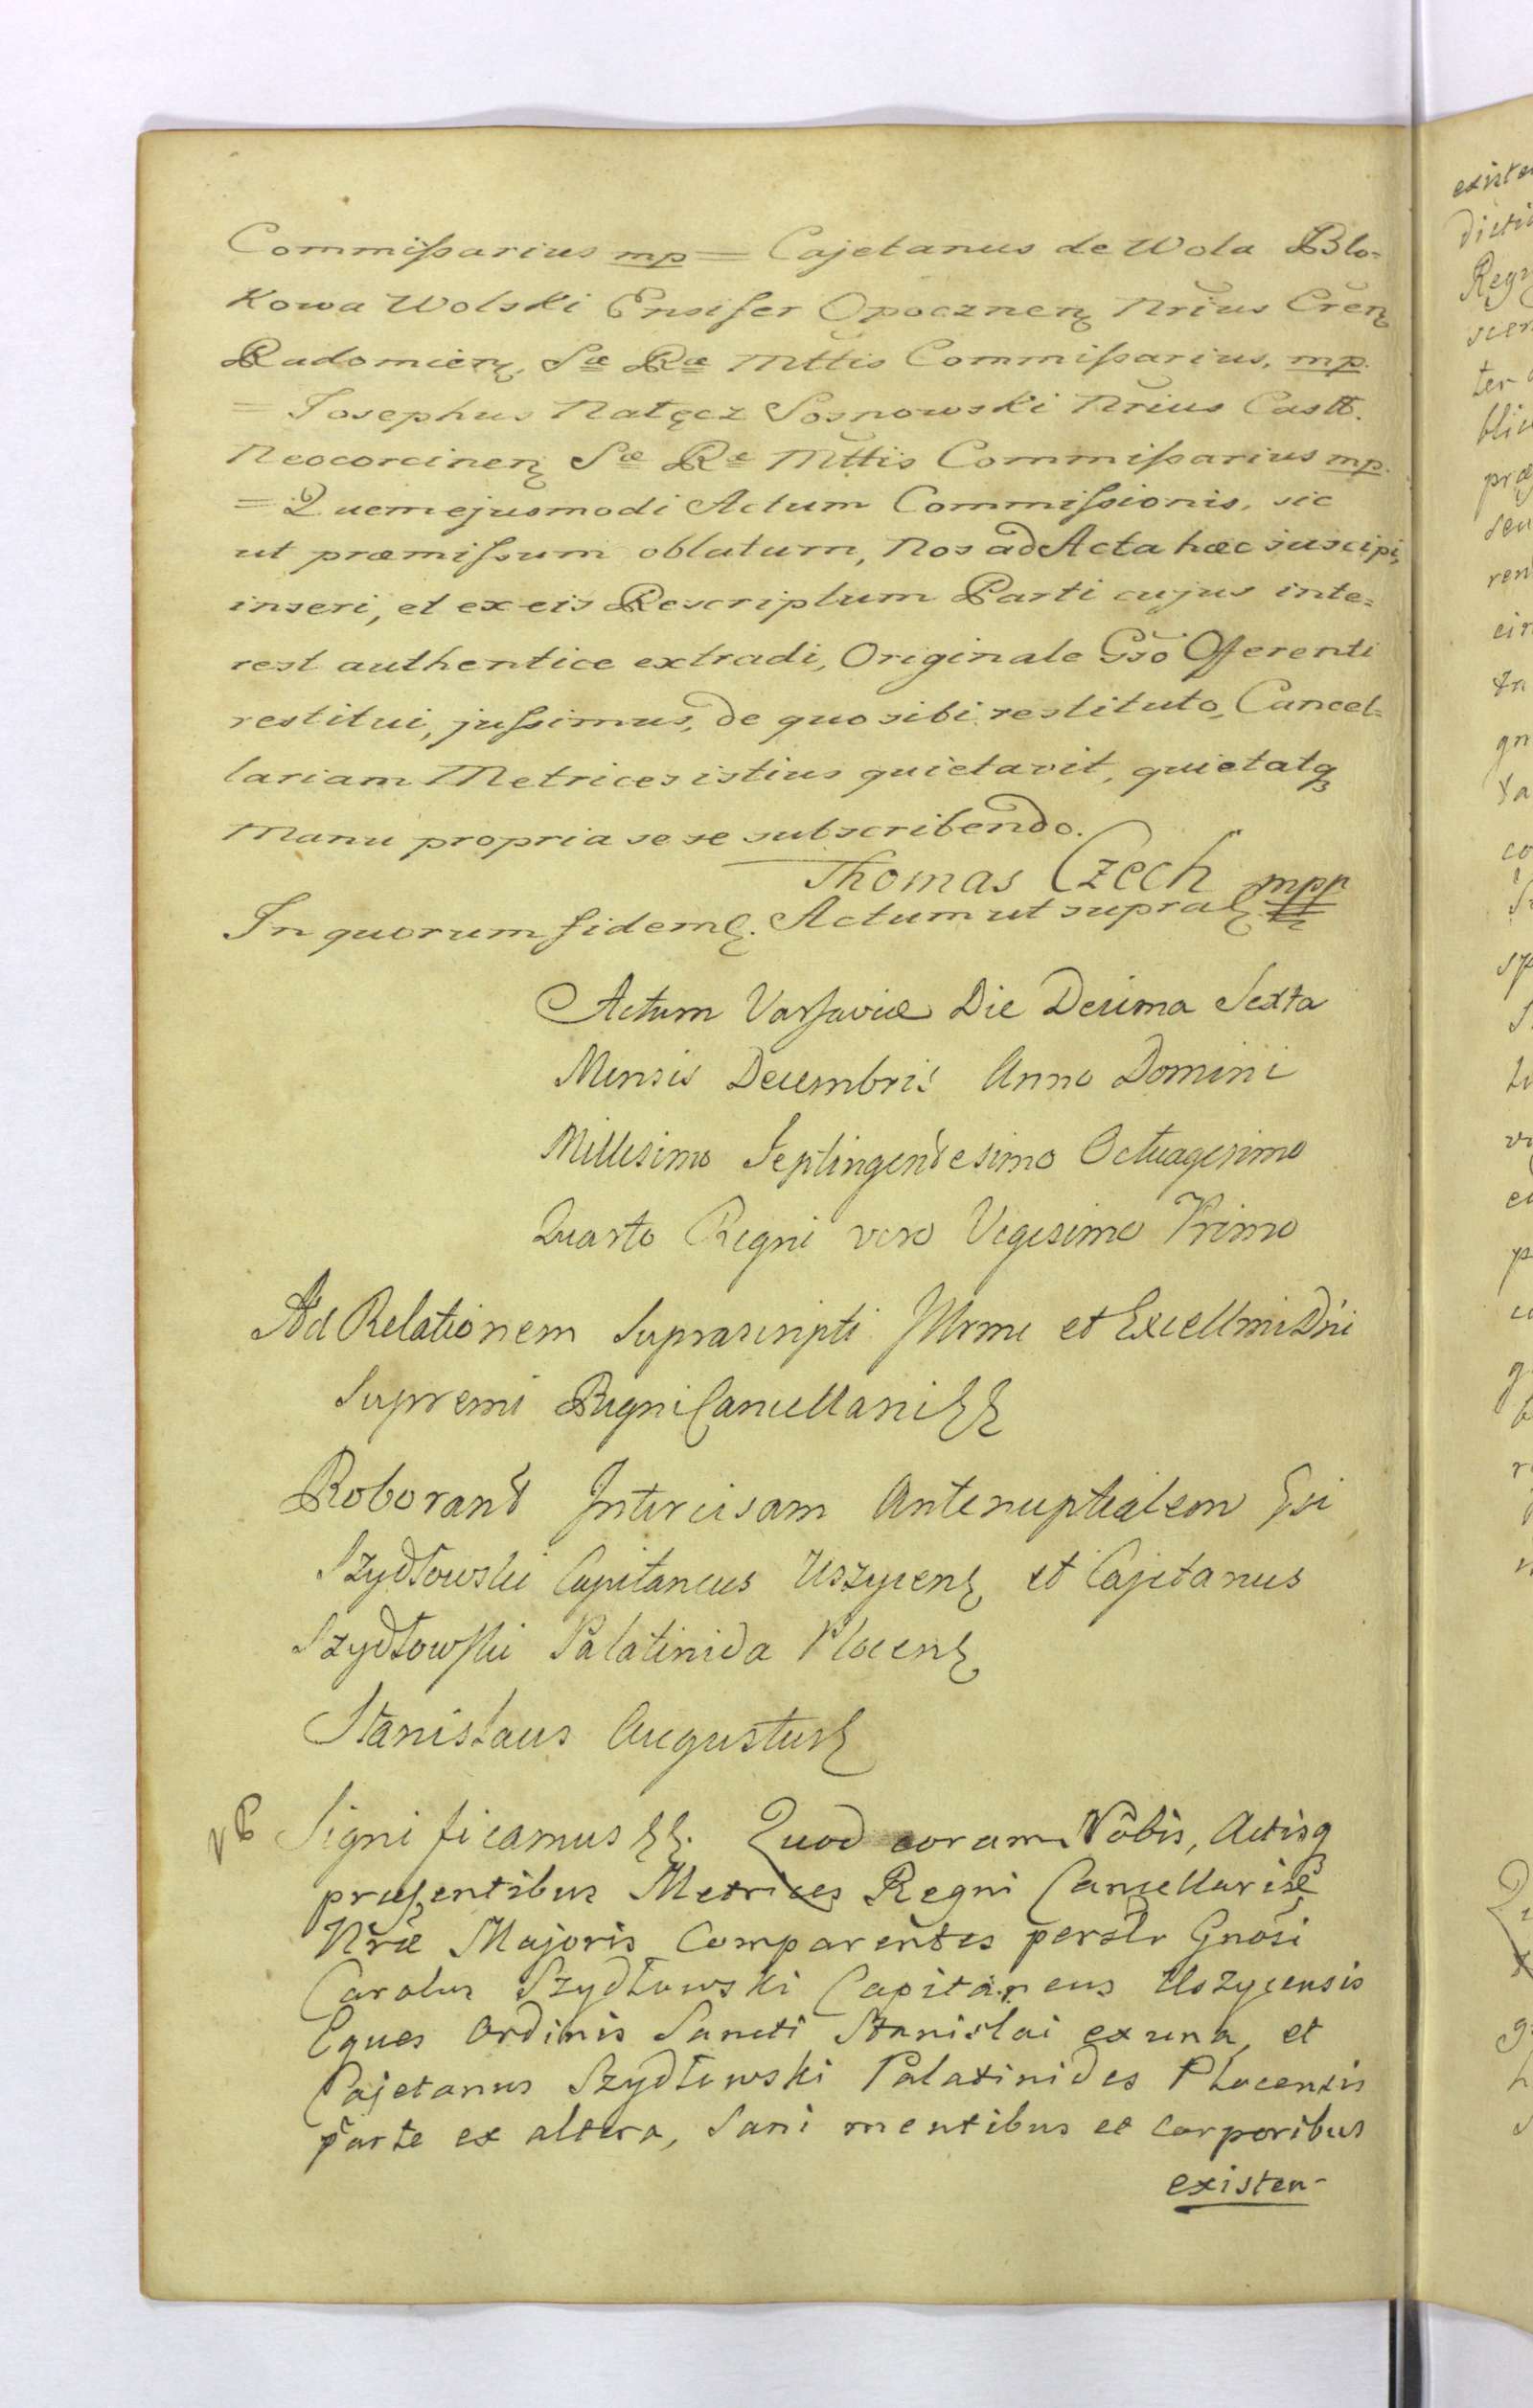 Commißarius mp = Cajetanus de Wola Blo=
kowa Wolski Ensifer Opocznen Nrius Cren
Radomien, Sæ Ræ Mttis Commißarius, mp.
= Josephus Natęcz Sosnowski Nrius Castt.
Neocorcinen Sæ Re Mttis Commißarius mp.
= Quem ejusmodi Actum Commißionis, sic
ut præmißum oblatum, Nos ad Acta hæc suscipi,
inseri, et ex eis Rescriptum Parti cujus inte=
rest authentice extradi, Originale Gso Offerenti
restitui, jußimus, de quo sibi restituto, Cancel=
lariam Metrices istius quietavit, quietatq
Manu propria se se subscribendo.
Thomas Czech mpp
In quorum fidem. Actum ut supra
Actum Varsaviæ Die Decima Sexta
Mensis Decembris Anno Domini
Millesimo Septingentesimo Octuagesimo
Quarto Regni vero Vigesimo Primo
Ad Relationem Suprascripti Illrmi et Excellmi Dni
Supremi Regni Cancellarii
Roborant Intercisam Antenuptialem Gsi
Szydłowski Capitaneus Uszycen et Cajetanus
Szydłowski Palatinida Plocen
Stanislaus Augustus
Significamus Quod coram Nobis, Actisq
præsentibus Metrices Regni Cancellariæ
Nræ Majoris Comparentes perslr Gnosi
Carolus Szydłowski Capitaneus Uszycensis
Eques Ordinis Sancti Stanislai ex una, et
Cajetanus Szydłowski Palatinides Plocensis
parte ex altera, Sani mentibus et Corporibus
existen-